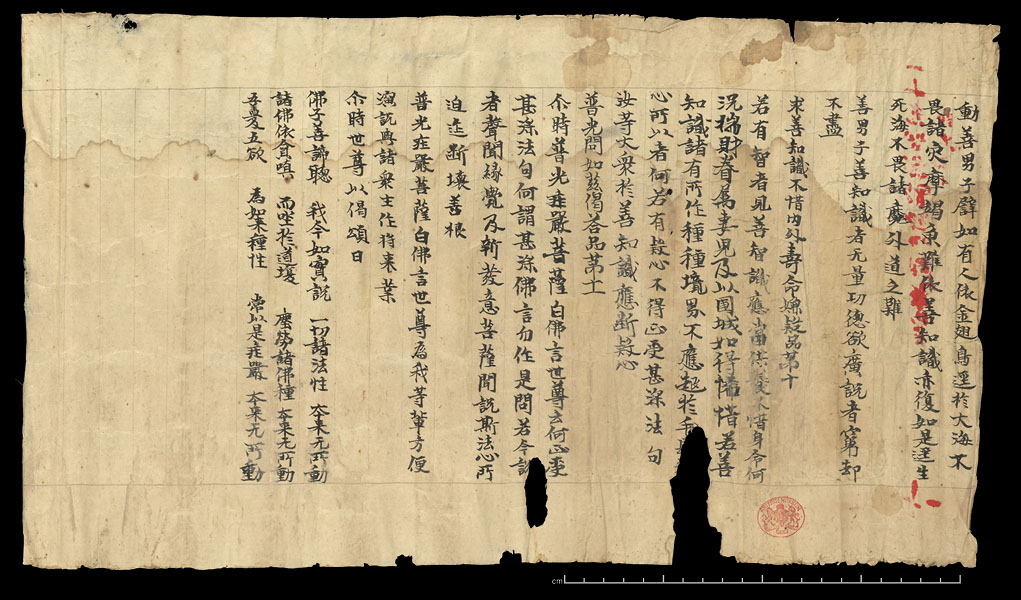 動善男子譬如有人依金翅鳥遥於大海不
畏諸灾摩竭魚難依善知識亦復如是逕生
死海不畏諸魔外道之難
善男子善知識者无量功德欲廣說者窮劫
不盡
求善知識不惜内外壽命嫌疑品苐十
若有智者見善智識應當供養不惜身命何
況揣財眷属妻兒及以國城如得悋惜若善
知識諸有所作種種境界不應起於
心所以者何若有疑心不得正受甚深法句
汝等大衆於善知識應断疑心
普光問如茲偈荅品苐十一
尒時普光庄嚴菩薩白佛言世尊云何正受
甚深法句何謂甚深佛言勿作是問若今說
者聲聞縁覺及新發意菩薩聞說斯法心所
迫迮断壞善根
普光庄嚴菩薩白佛言世尊為我等輩方便
演說與諸衆生作将来業
尒時世尊以偈頌曰
佛子善諦聴 我今如實說 一切諸法性 夲来无所動
諸佛依貪嗔 而坐於道場 塵勞諸佛種 夲来无所動
五愛五欲 為如来種性 常以是庄嚴 夲来无所動
cm